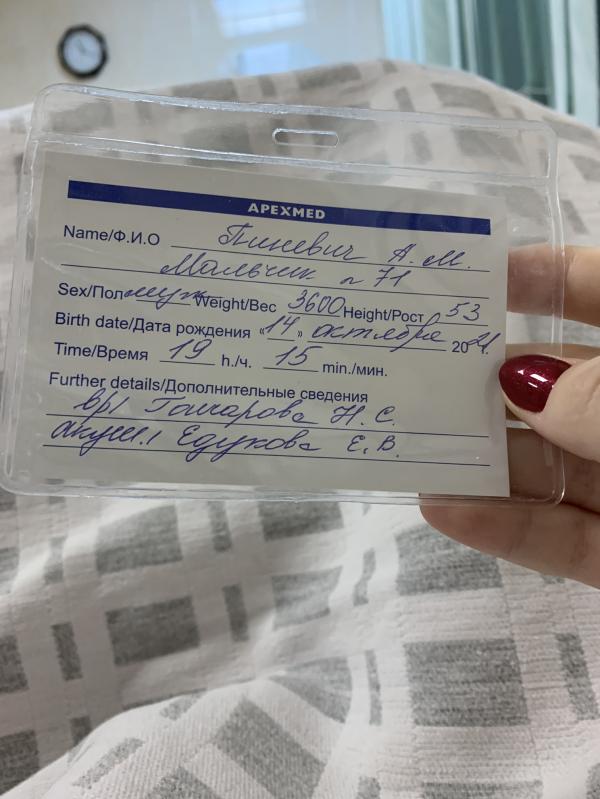 APEXMED
Name/Ф.И.О Пиневич А.М.
Мальчик n 71
Sex/Пол муж Weight/Вес 3600 Height/Рост 53
Birth date/Дата рождения «14» октября 20 г.
Time/Время 19 h./ч. 15 min./мин.
Further details/Дополнительные сведения
вр/ Гончарова Н.С.
акуш./ Едукова Е.В.